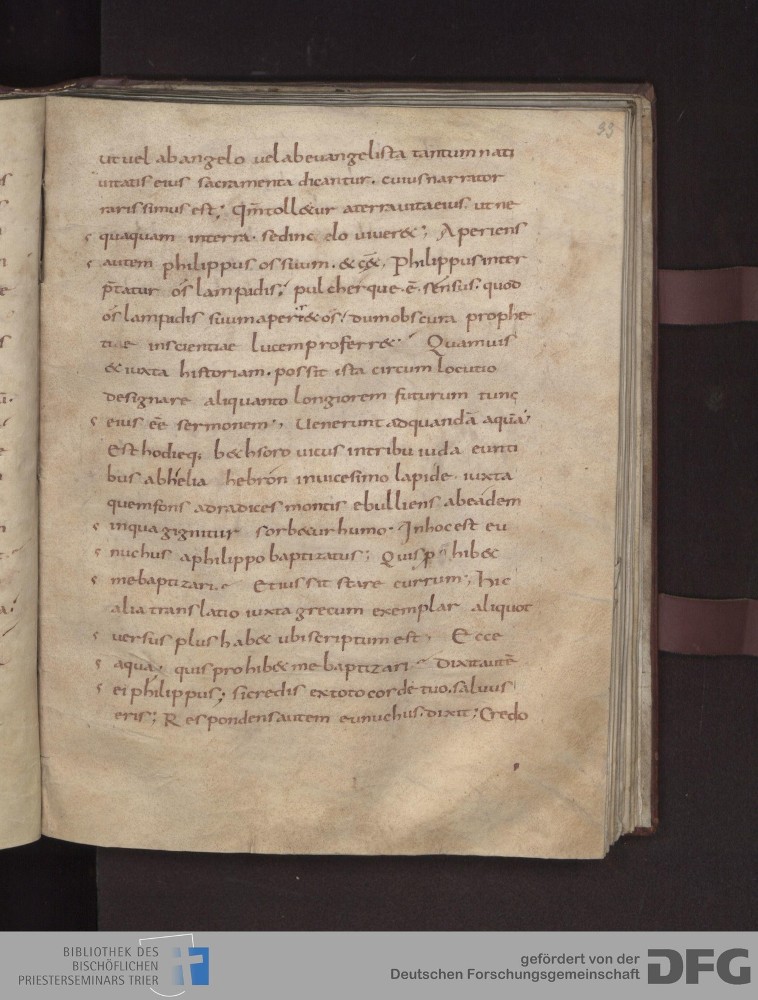 33
ut uel ab angelo uel ab euangelista tantum nati
uitatis eius sacramenta dicantur. cuius narrator
rarissimus est; Qm̄ toll&ur a terra uita eius. ut ne
quaquam in terra. sed in c̣elo uiuer&; Aperiens
autem philippus os suum. & c̄&. Philippus inter
p̄tatur os lampadis; pulcherque ē sensus. quod
os lampadis suum aper& os. dum obscura prophe
tiae in scientiae lucem proferr&; Quamuis
& iuxta historiam. possit ista circum locutio
designare aliquanto longiorem futurum tunc
eius eē sermonem; Uenerunt ad quandā aquā;
Est hodieq; b&hsoro uicus in tribu iuda eunti
bus ab helia hebron in uicesimo lapide. iuxta
quem fons ad radices montis ebulliens ab eadem
in qua gignitur sorb&ur humo. In hoc est eu
nuchus a philippo baptizatus; Quis p hib&
me baptizari. Et iussit stare currum; Hic
alia translatio iuxta grecum exemplar aliquot
uersus plus hab& ubi scriptum est. Ecce
aqua. quis prohib& me baptizari. dixit autē
ei philippus; si credis ex toto corde tuo. saluus
eris; Respondens autem eunuchus. dixit; Credo
BIBLIOTHEK DES
BISCHÖFLICHEN
PRIESTERSEMINARS TRIER
gefördert von der
Deutschen Forschungsgemeinschaft
DFG